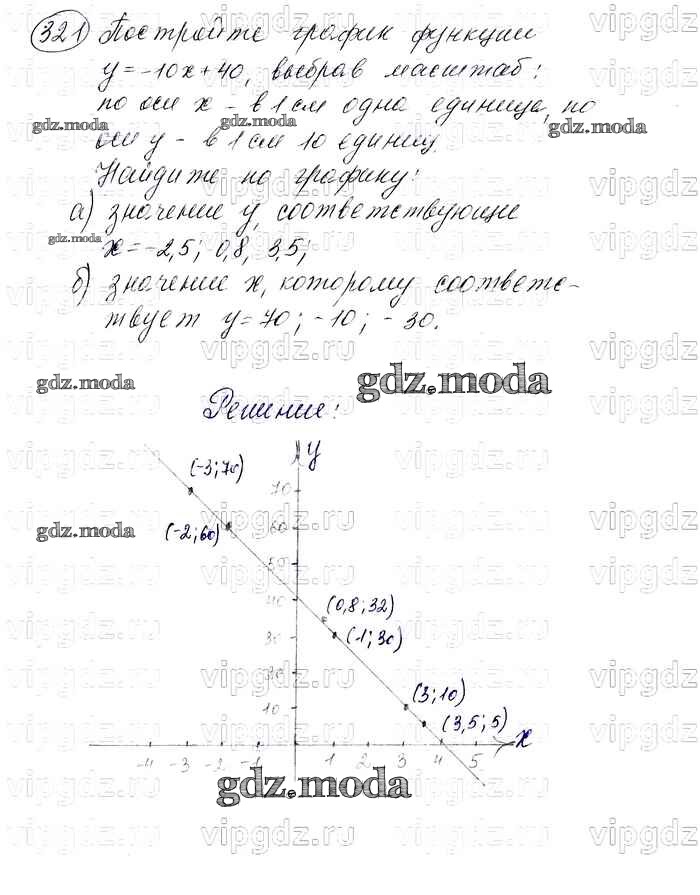 321 Постройте график функции
y=-10x+40, выбрав масштаб:
по оси x - в 1 см одна единица, по
оси y - в 1 см 10 единиц.
Найдите по графику:
а) значение y, соответствующие
x=-2,5; 0,8, 3,5;
б) значение x, которому соответс-
твует y=70; -10; -30.
gdz.moda gdz.moda gdz.moda
gdz.moda
gdz.moda gdz.moda
Решение:
y
(-3;70)
70
gdz.moda
(-2;60)
60
50
40
(0,8;32)
30
(-1;30)
20
(3;10)
10
(3,5;5)
x
-4 -3 -2 -1 1 2 3 4 5
gdz.moda
vipgdz.ru